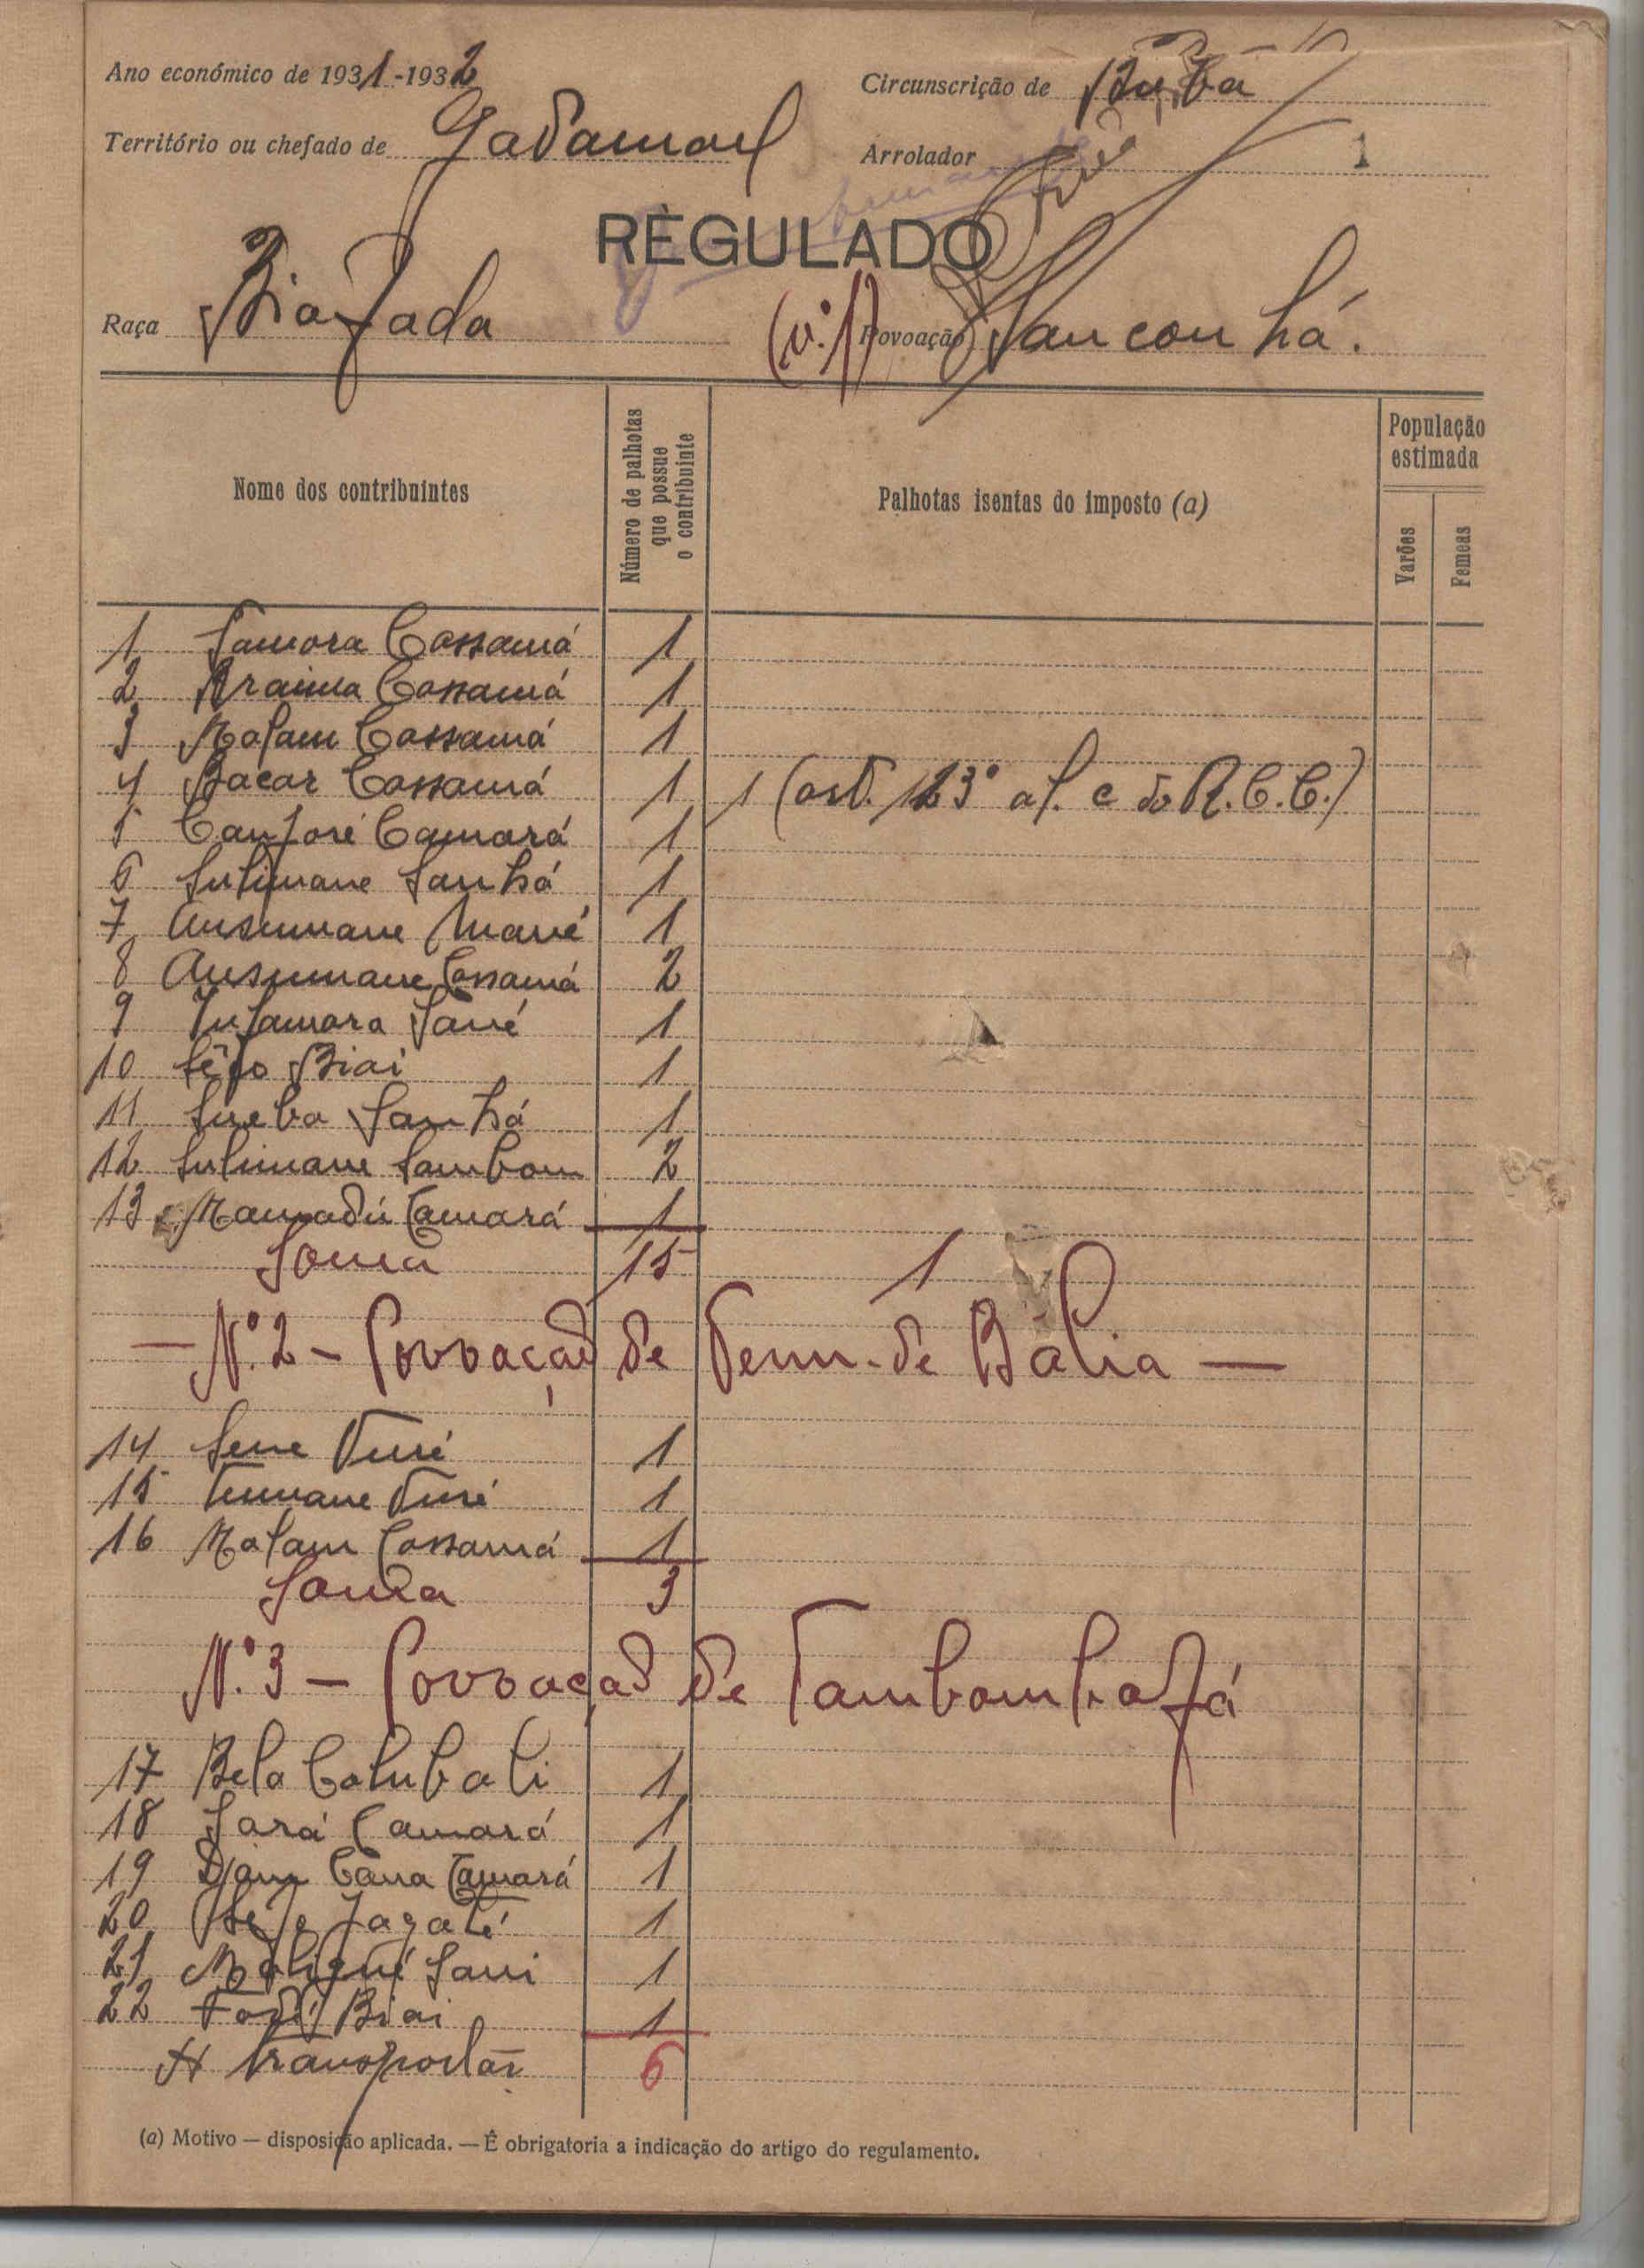 Ano económico de 1931-1932
Circunscrição de Buba
Território ou chefado de Gadamael
Arrolador
1
REGULADO
Raça Biafada
(n.º 1) Povoação Sanconhá.
Nome dos contribuintes
Número de palhotas que possue o contribuinte
Palhotas isentas do imposto (a)
População estimada
Varões
Femeas
1 Samora Cassamá 1
2 Braima Cassamá 1
3 Malam Cassamá 1
4 Bacar Cassamá 1 1 (art. 123º al. c do R.C.C.)
5 Canjoré Camará 1
6 Sulimane Sanhá 1
7 Ansumane Mané 1
8 Ansumane Cassamá 2
9 Infamara Sané 1
10 Sêjo Biai 1
11 Sireba Sanhá 1
12 Sulimane Sambom 2
13 Mamadú Camará 1
Soma 15 1
— N.º 2 — Povoação de Tenn. de Bália —
14 Sene Turé 1
15 Tumane Turé 1
16 Malam Cassamá 1
Soma 3
N.º 3 — Povoação de Tambombofá
17 Bela Colubali 1
18 Sará Camará 1
19 Djam Cana Camará 1
20 Jagaté 1
21 Maliqué Sani 1
22 Fodi Biai 1
A transportar 6
(a) Motivo — disposição aplicada. — É obrigatoria a indicação do artigo do regulamento.